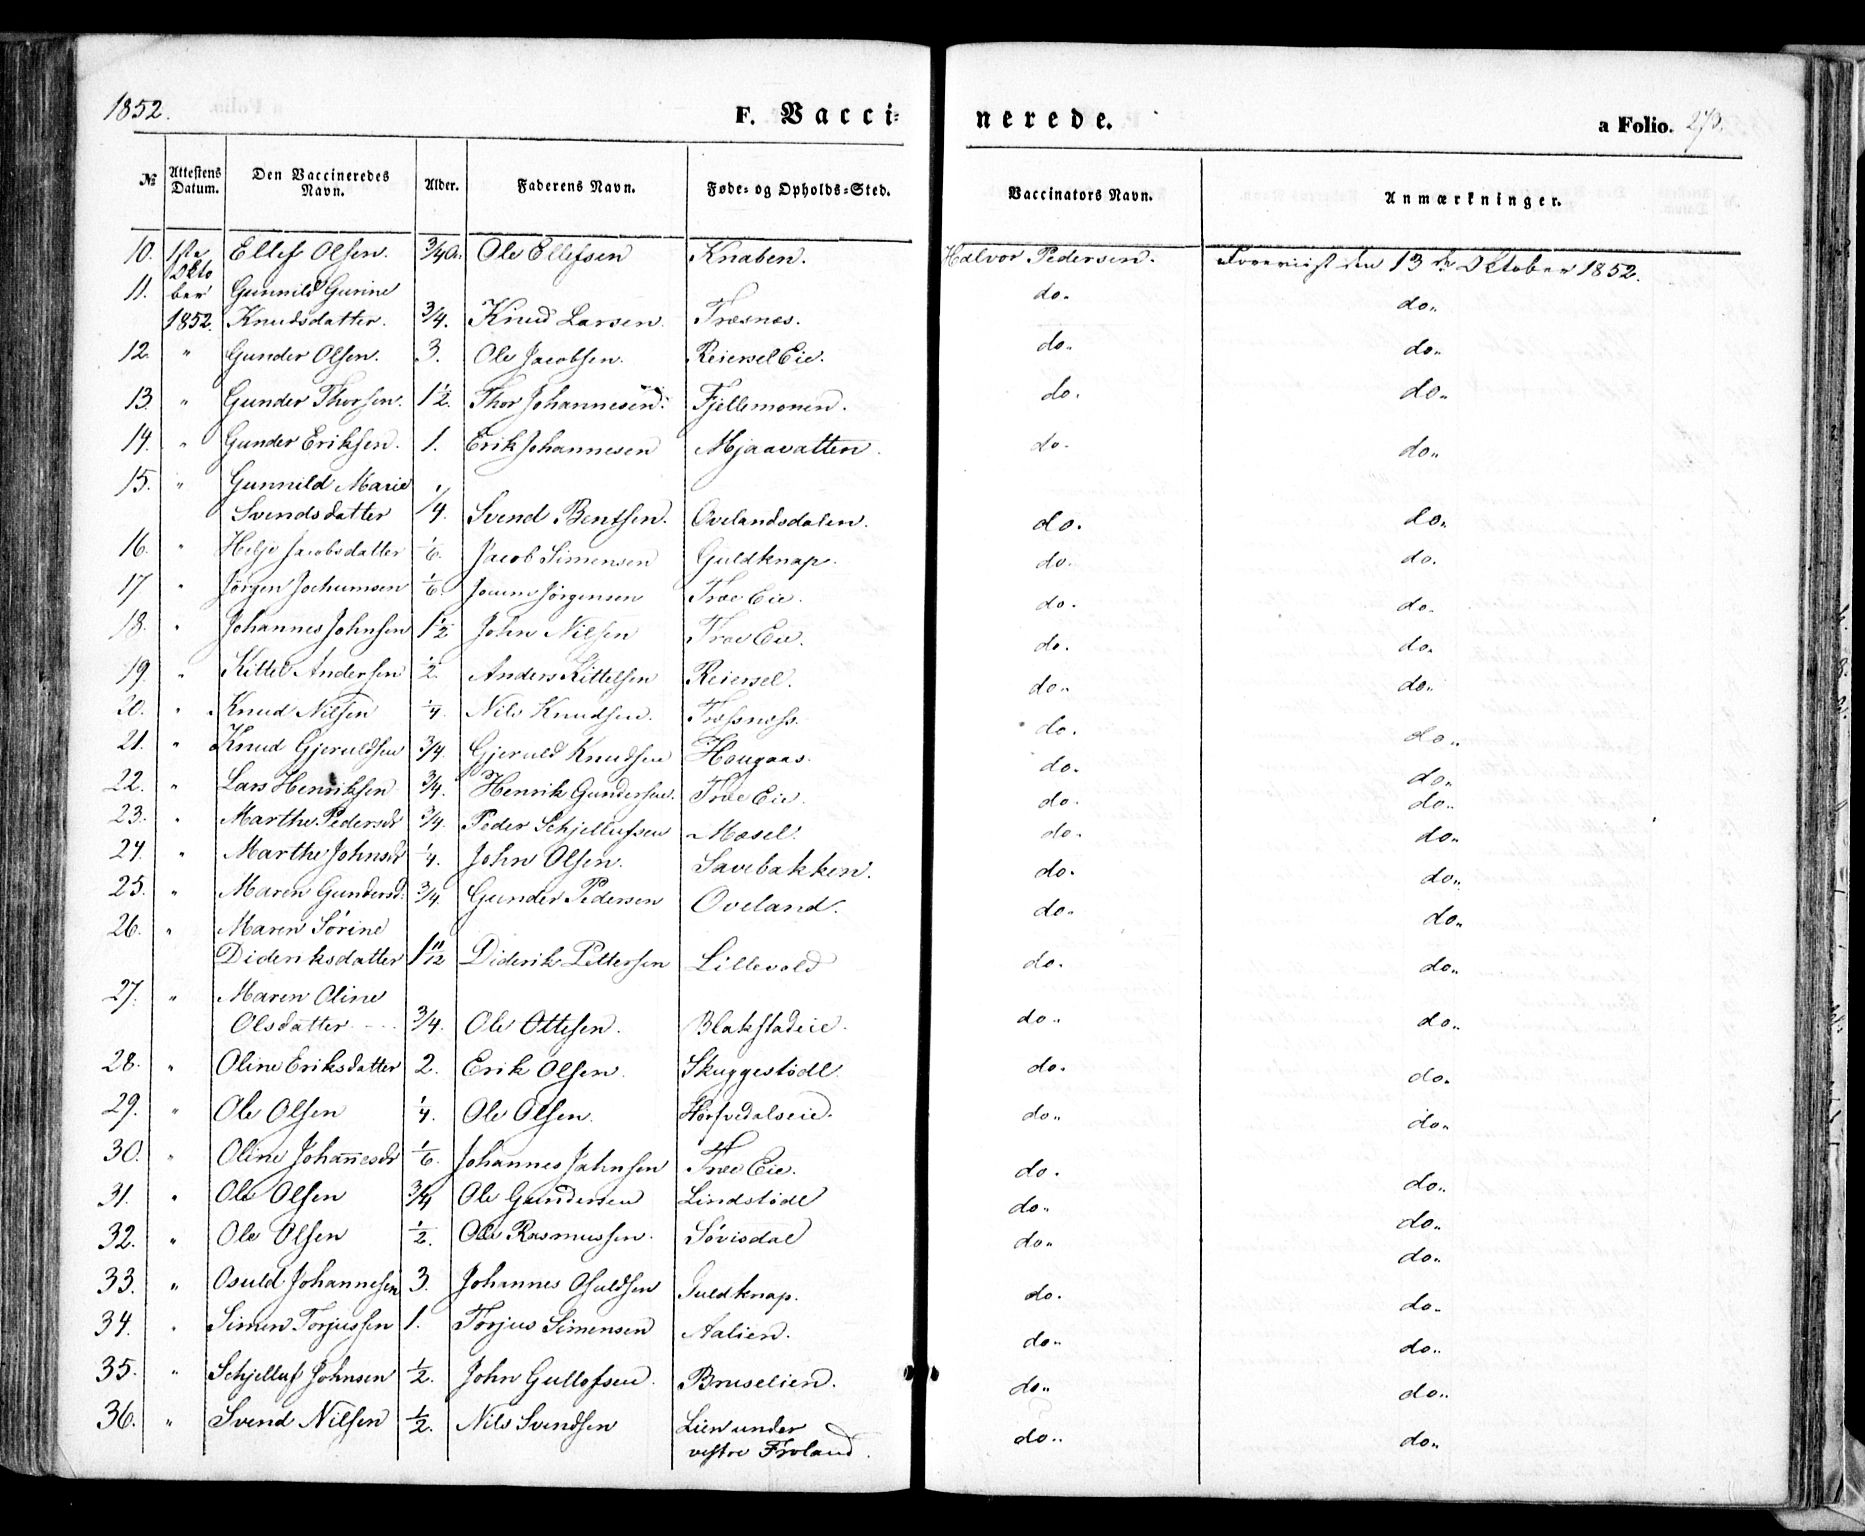 1852.
F. Vacci-
nerede.
a Folio. 273.
№ Attestens Datum. Den Vaccineredes Navn. Alder. Faderens Navn. Føde- og Opholds-Sted. Vaccinators Navn. Anmærkninger.
10. 1ste Ellef Olsen. 3/4 A. Ole Ellefsen Knaben. Halvor Pedersen. Foreviist den 13de Oktober 1852.
Okto
11. ber Gunnild Gurine do. do.
1852. Knudsdatter. 3/4. Knud Larsen. Træsnæs.
12. " Gunder Olsen. 3. Ole Jacobsen. Reiersel Eie. do. do.
13. " Gunder Thorsen. 1 1/2. Thor Johannesen. Fjellemonen. do. do.
14. " Gunder Eriksen. 1. Erik Johannesen Mjaavatten. do. do.
15. " Gunnild Marie
Svendsdatter 1/4. Svend Bentsen. Ovelandsdalen. do. do.
16. " Helje Jacobsdatter 1/6. Jacob Simensen Guldknap. do. do.
17 " Jørgen Jochumsen 1/6. Jocum Jørgensen Træe Eie. do. do.
18. " Johannes Johnsen 1 1/2 John Nilsen Træe Eie. do. do.
19. " Kittel Andersen 1/2. Anders Kittelsen Reiersel. do. do.
20. " Knud Nilsen 1/4. Nils Knudsen. Træsnæss. do. do.
21. " Knud Gjeruldsen 3/4. Gjeruld Knudsen Hougaas. do. do.
22. " Lars Henriksen 3/4. Henrik Gundersen. Træe Eie. do. do.
23. " Marthe Pedersdr 3/4. Peder Schjellufsen Mosel. do. do.
24. " Marthe Johnsdr 1/4. John Olsen. Savebakken. do. do.
25. " Maren Gundersd. 3/4. Gunder Pedersen Oveland. do. do.
26. " Maren Sørine
Dideriksdatter 1 11/12 Diderik Pettersen Lillevold do. do.
27. " Maren Oline
Olsdatter. 3/4. Ole Ottesen. Blakstadeie. do. do.
28. " Oline Eriksdatter 2. Erik Olsen. Skuggestödl. do. do.
29. " Ole Olsen 1/4. Ole Olsen. do. do.
30. " Oline Johannesdr 1/6. Johannes Jahnsen Træe Eie. do. do.
31. " Ole Olsen 3/4 Ole Gundersen Lindstödl do. do.
32. " Ole Olsen 1/2. Ole Rasmussen. Sövisdal do. do.
33. " Osuld Johannesen 3. Johannes Osuldsen Guldknap. do. do.
34. " Simen Torjussen 1. Torjus Simensen Aalien. do. do.
35. " Schjelluf Johnsen 1/2. John Gullofsen. Bruselien. do. do.
36. " Svend Nilsen 1/2. Nils Svendsen Lien under do. do.
vestre Froland.